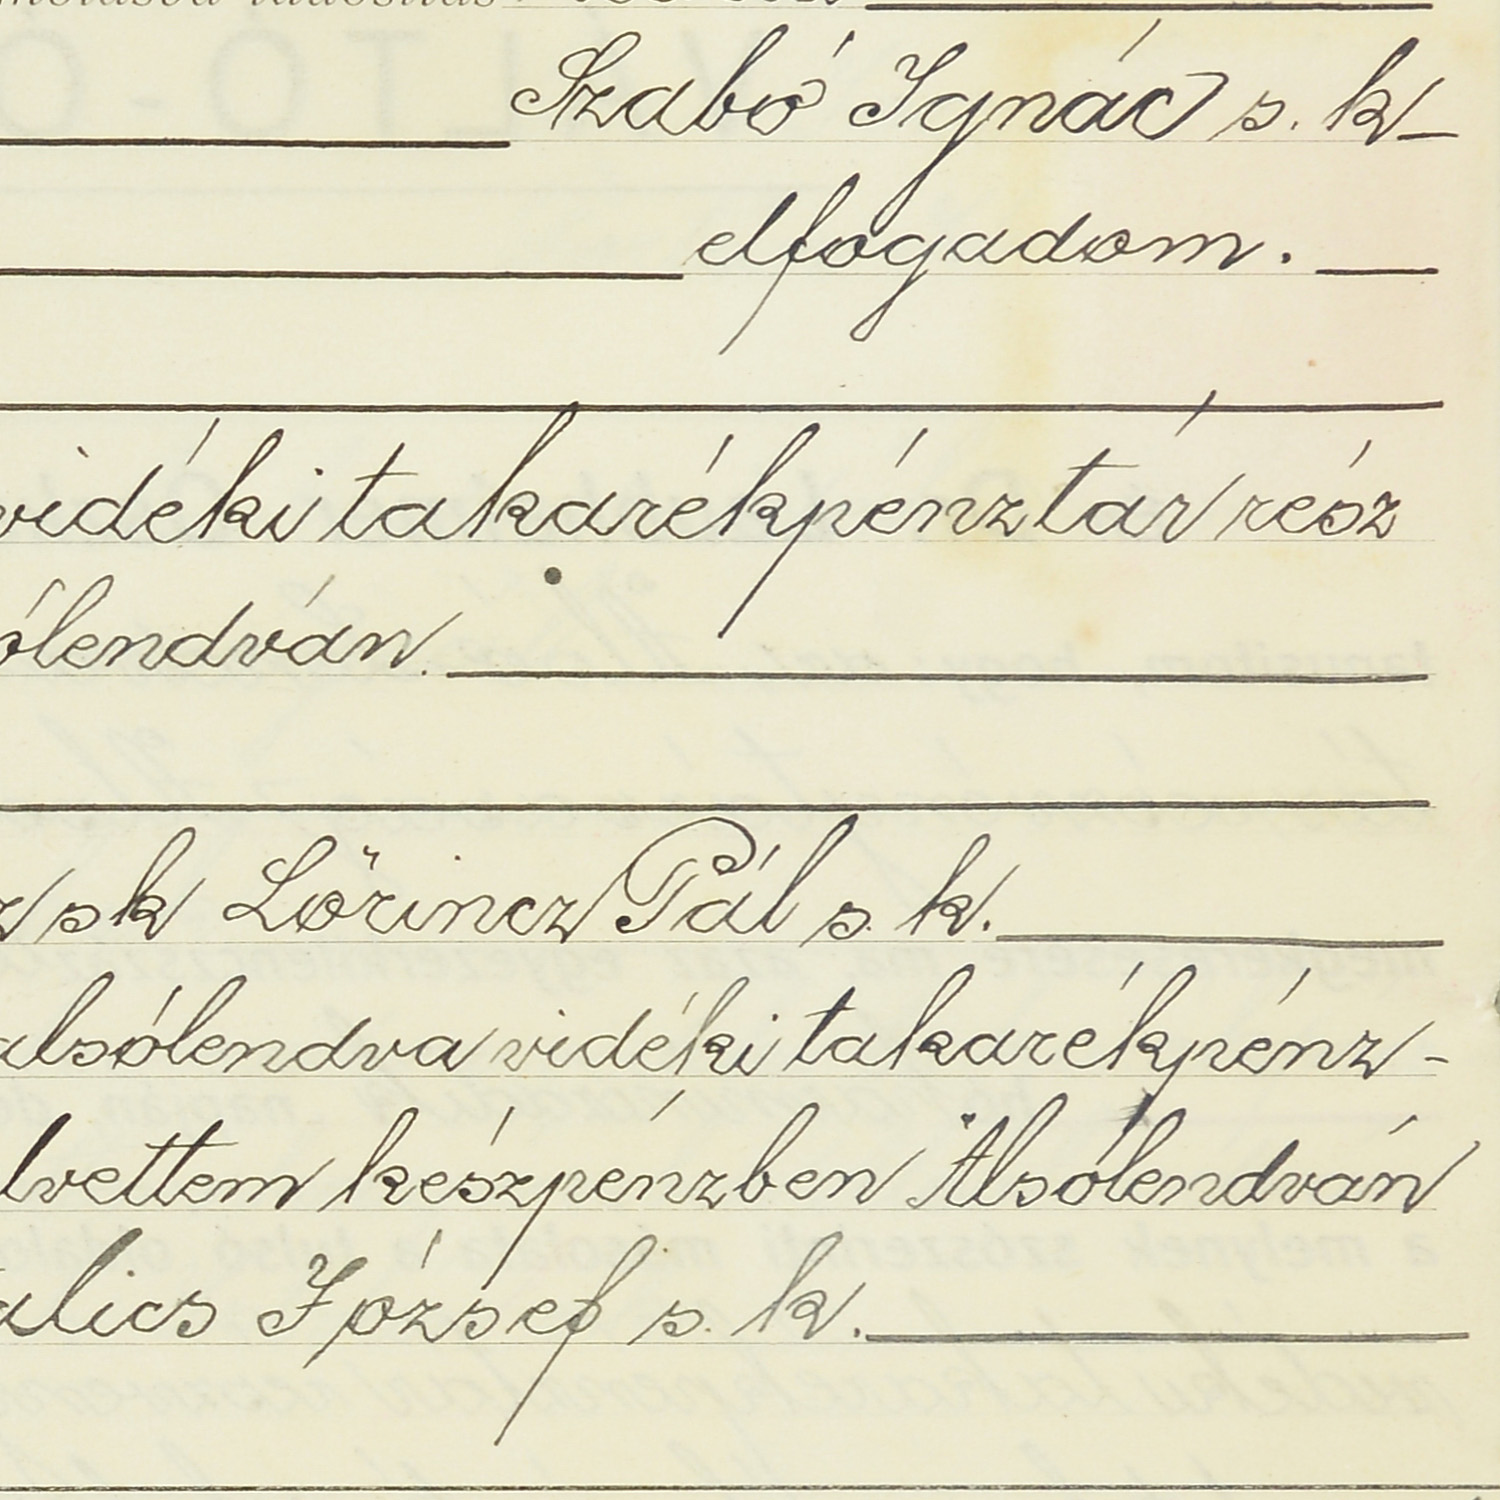 Szabó Ignác s. k.
elfogadom.
vidéki takarékpénztár rész
ólendván.
sk Lőrincz Pál s. k.
alsólendva vidéki takarékpénz-
lvettem készpénzben Alsólendván
alics József s. k.